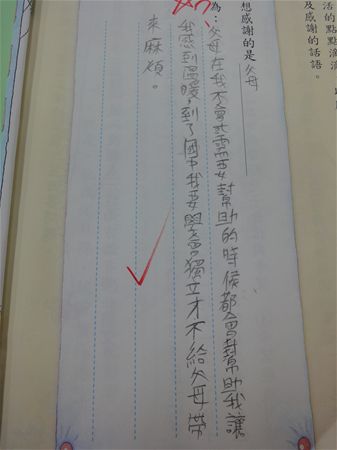 活的點點滴滴，
及感謝的話語。
想感謝的是父母
為：父母在我不會或需要幫助的時候都會幫助我讓
我感到溫暖，到了國中我要學會獨立才不給父母帶
來麻煩。